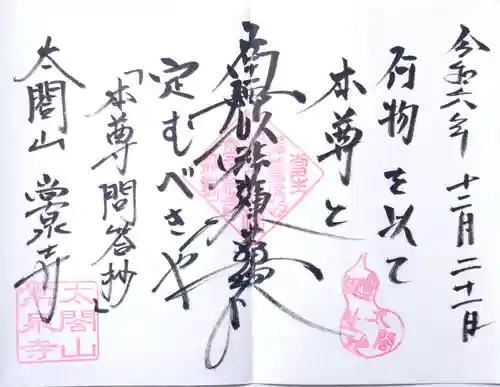 令和六年 十二月二十一日
何物を以て
本尊と
南無妙法蓮華経
定むべきや
「本尊問答抄」
太閤山 常泉寺
太閤山
常泉寺